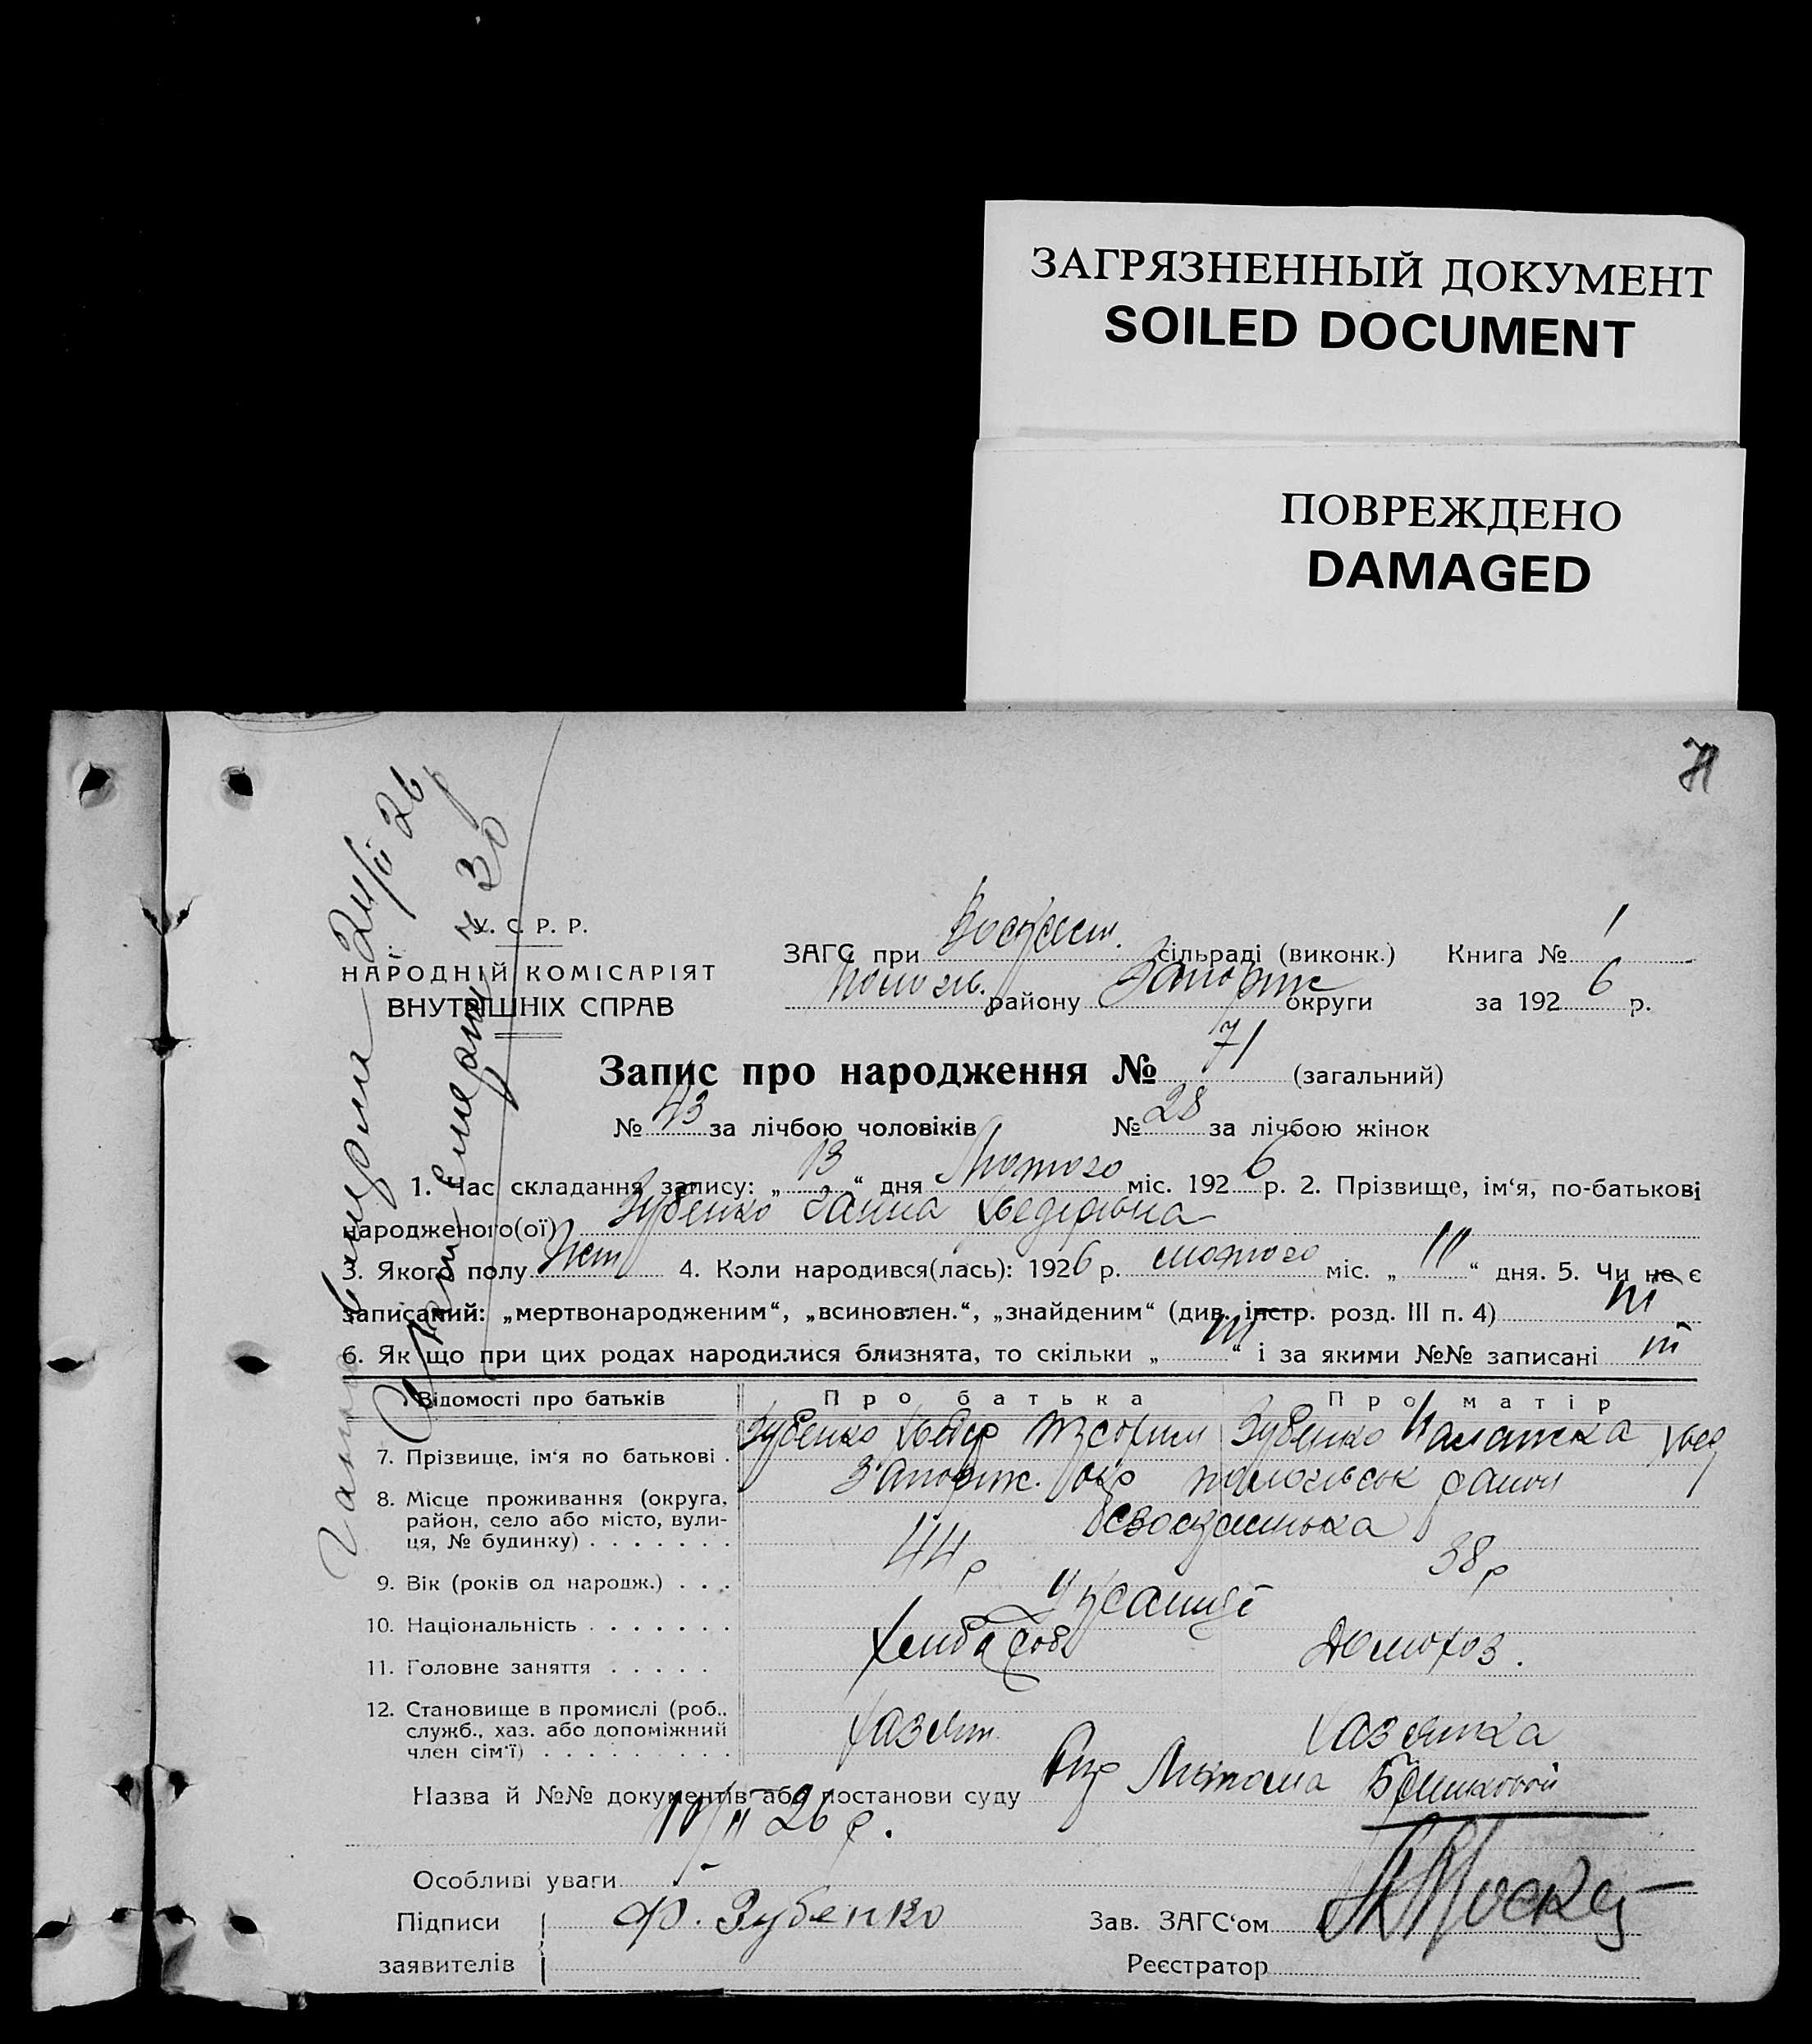 ЗАГРЯЗНЕННЫЙ ДОКУМЕНТ
SOILED DOCUMENT
ПОВРЕЖДЕНО
DAMAGED
71
У. С. Р. Р.
НАРОДНІЙ КОМІСАРІЯТ
ВНУТРІШНІХ СПРАВ
ЗАГС при Воскресн. сільраді (виконк.) Книга № 1
Полог. району Запоріж округи за 1926 р.
Запис про народження № 71 (загальний)
№ 43 за лічбою чоловіків № 28 за лічбою жінок
1. Час складання запису: „13“ дня Лютого міс. 1926 р. 2. Прізвище, ім‘я, по-батькові
народженого(ої) Зубенко Ганна Хведорівна
3. Якого полу жін 4. Коли народився(лась): 1926 р. лютого міс. „11“ дня. 5. Чи не є
записаний: „мертвонародженим“, „всиновлен.“, „знайденим“ (див. інстр. розд. III п. 4) ні
6. Як що при цих родах народилися близнята, то скільки „ні“ і за якими №№ записані ні
Відомості про батьків Про батька Про матір
7. Прізвище, ім‘я по батькові . Зубенко Хведір Зубенко Палажка Хвед
8. Місце проживання (округа, Запоріж. окр пологівськ район
район, село або місто, вули-
ця, № будинку) . . . . . . .
9. Вік (років од народж.) . . . 44 р 38 р
10. Національність . . . . . . . Українці
11. Головне заняття . . . . . Хлібороб Домогоз.
12. Становище в промислі (роб.,
служб., хаз. або допоміжний
член сім‘ї) . . . . . . . . . Хазяїн Хазяйка
Назва й №№ документів або постанови суду
26 р.
Особливі уваги
Підписи Ф. Зубенко Зав. ЗАГС‘ом
заявителів Реєстратор